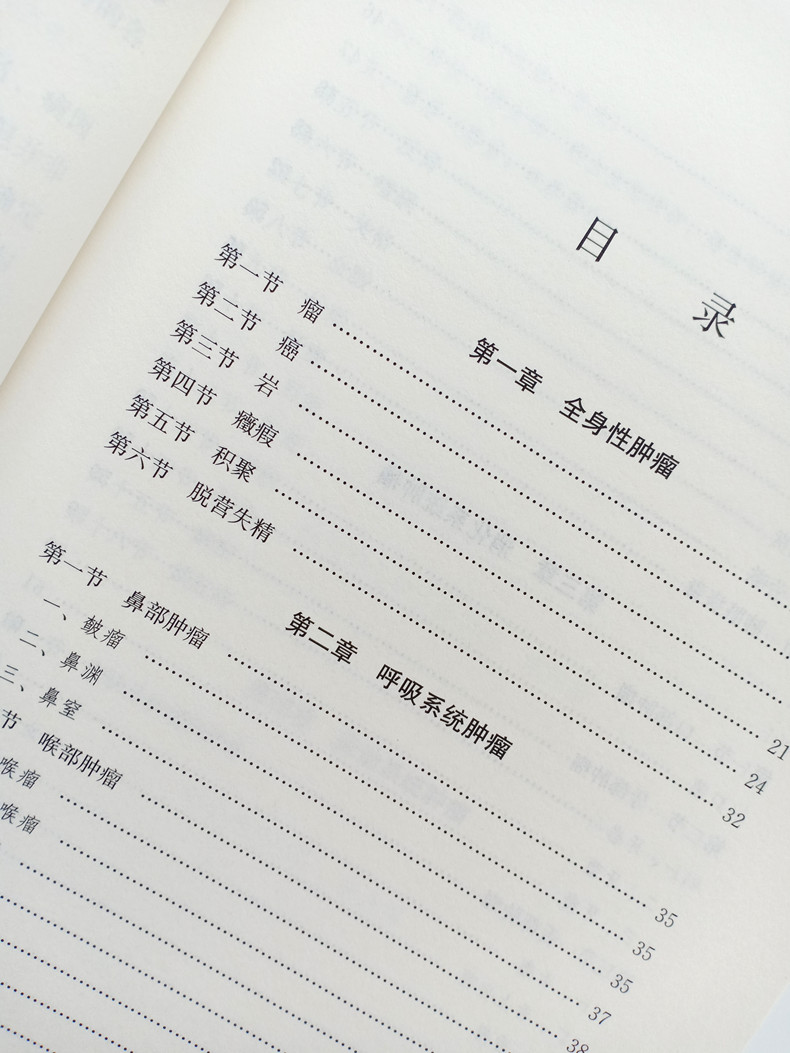 目 录
第一章 全身性肿瘤
第一节 瘤
第二节 癌
第三节 岩
第四节 癥瘕 21
第五节 积聚 24
第六节 脱营失精 32
第二章 呼吸系统肿瘤
第一节 鼻部肿瘤 35
一、 瘤 35
二、鼻渊 35
三、鼻窒 37
节 喉部肿瘤 38
喉瘤
喉瘤